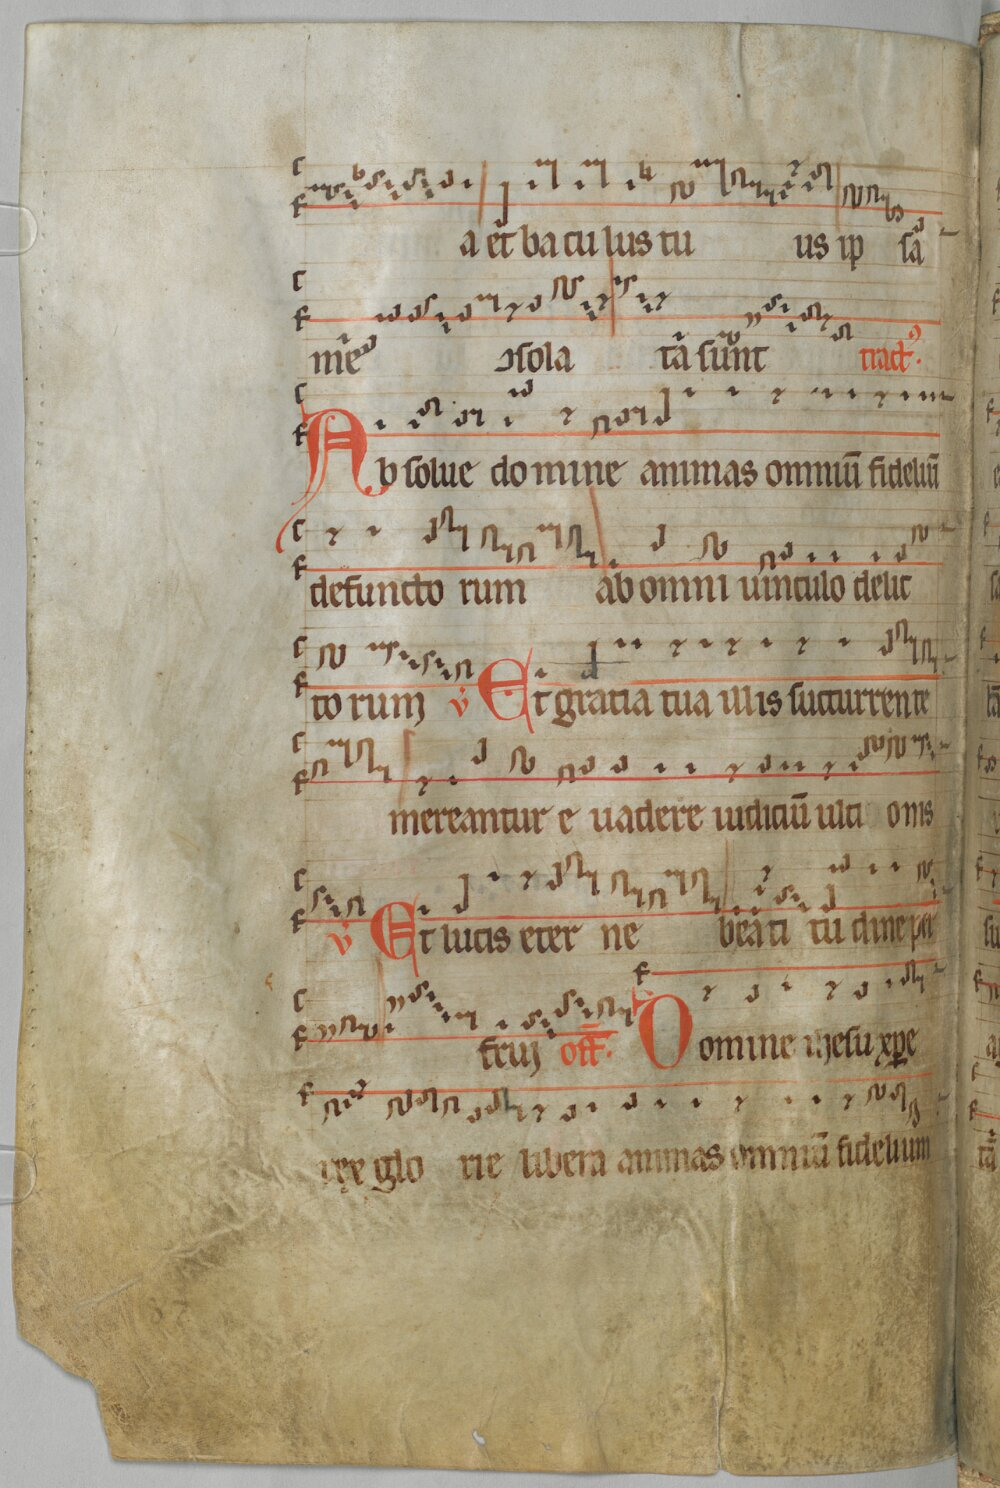 a et̄ ba cu lus tu us ip̄ sā
mē ↄsola tā sūnt tract᷒.
Ab solue domine animas omniū fideliū
defuncto rum ab omni uinculo delic
to rum v̓ Et gratia tua illis succurrente
mereantur e uadere iudiciū ulti onis
v̓ Et lucis eter ne bea ti tu dine per
frui off̄. Domine ihesu xp̄e
rex glo rie libera animas omniū fidelium